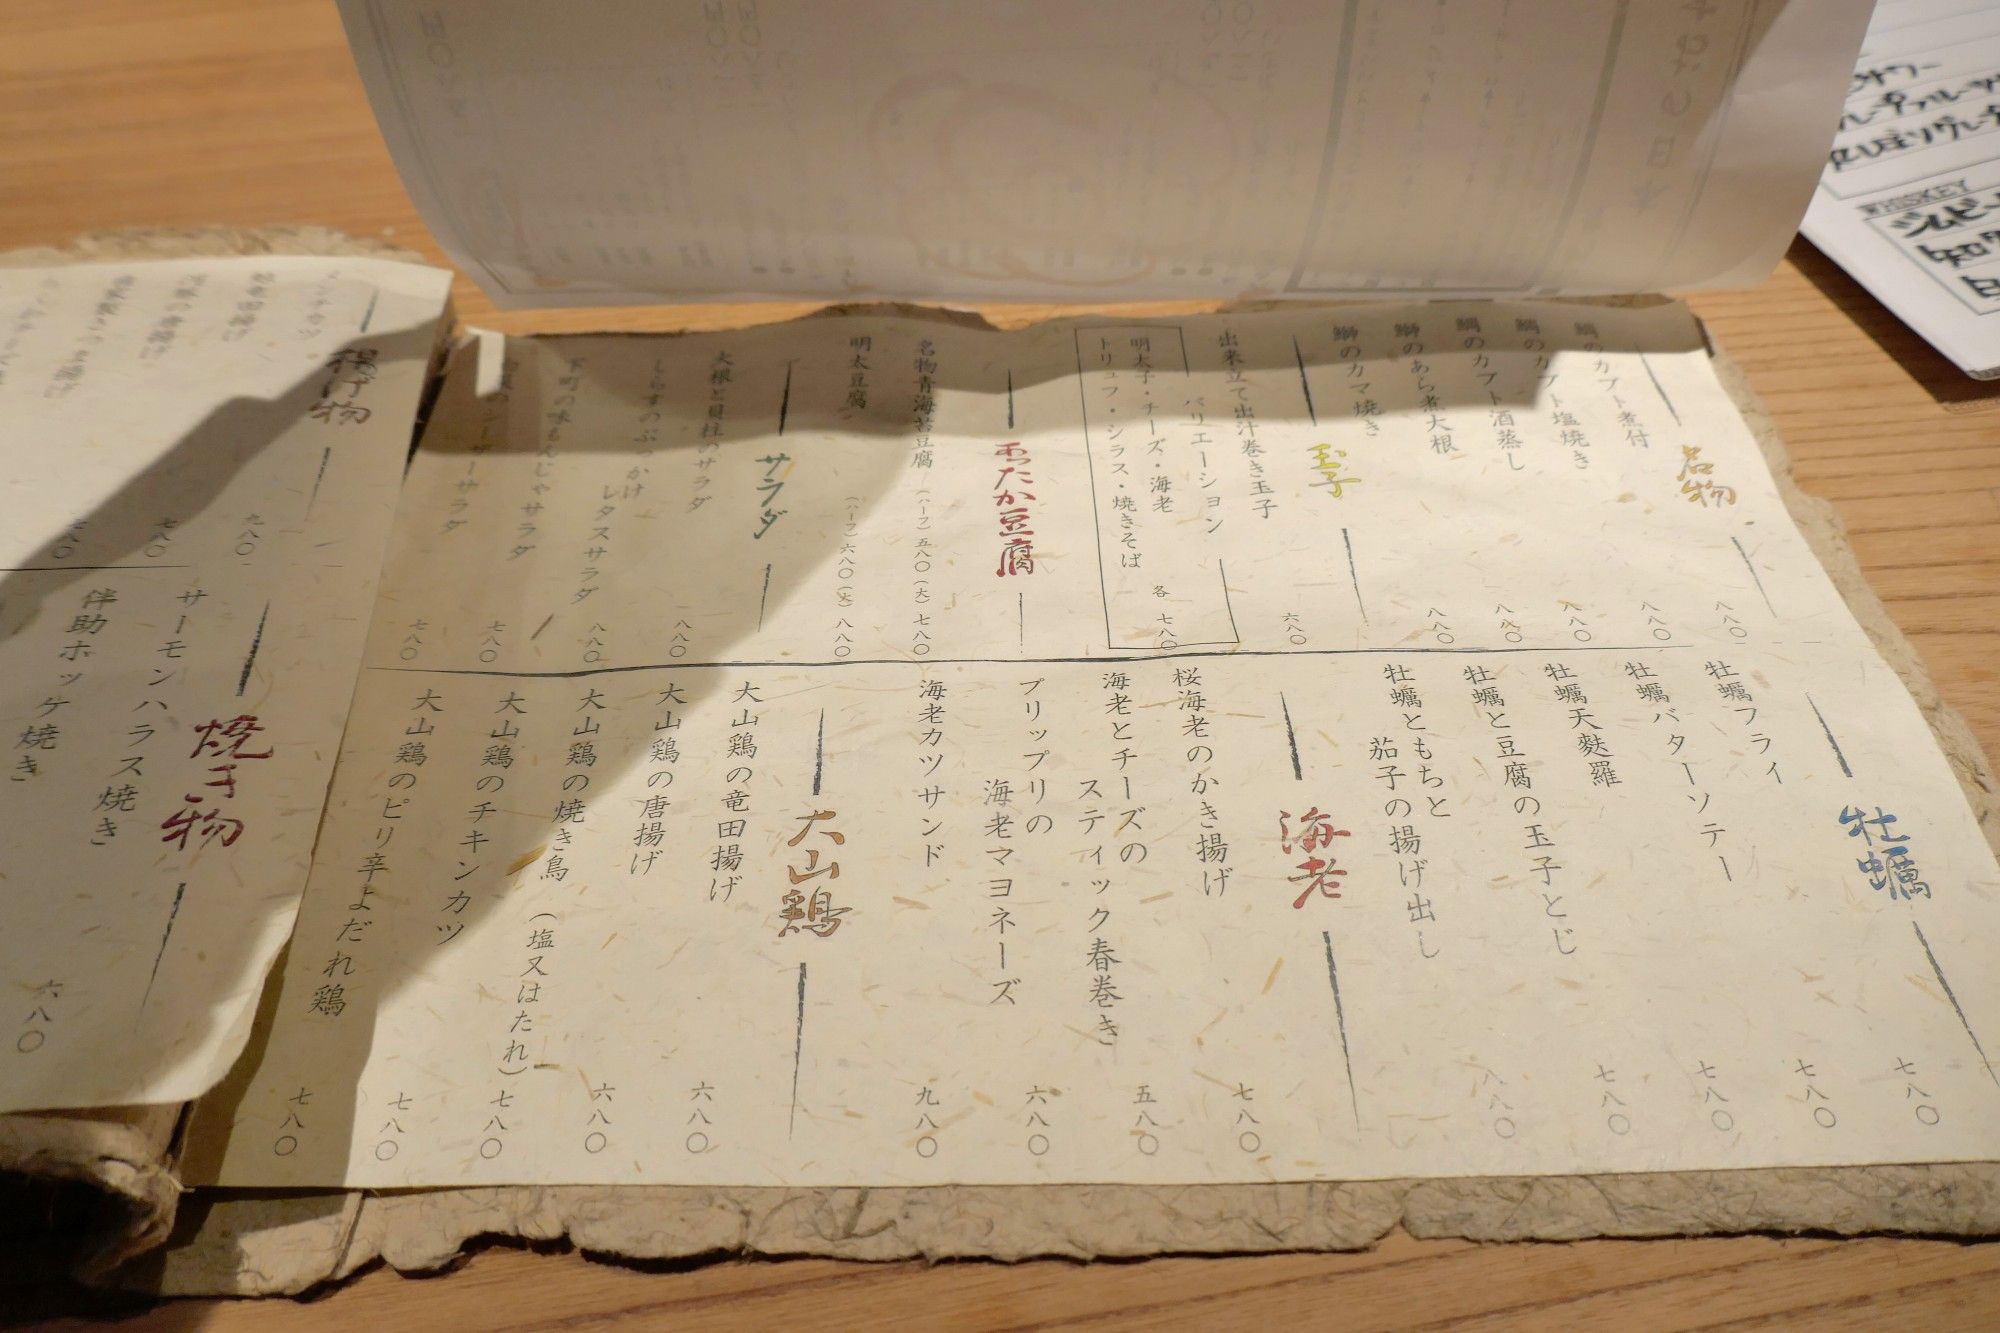 名物
鯛のカブト煮付
八八〇
鯛のカブト塩焼き
八八〇
鯛のカブト酒蒸し
八八〇
鰤のあら煮大根
八八〇
鰤のカマ焼き
八八〇
玉子
出来立て出汁巻き玉子
六八〇
バリエーション
明太子・チーズ・海老
トリュフ・シラス・焼きそば
各 七八〇
たか豆腐
名物青海苔豆腐 (ハーフ) 五八〇 (大) 七八〇
明太豆腐 (ハーフ) 六八〇 (大) 八八〇
サラダ
大根と貝柱のサラダ
八八〇
しらすのぶっかけ
レタスサラダ
八八〇
下町の味もんじゃサラダ
七八〇
のシーザーサラダ
七八〇
牡蠣
牡蠣フライ
七八〇
牡蠣バターソテー
七八〇
牡蠣天麩羅
七八〇
牡蠣と豆腐の玉子とじ
七八〇
牡蠣ともちと
茄子の揚げ出し
八八〇
海老
桜海老のかき揚げ
七八〇
海老とチーズの
スティック春巻き
五八〇
プリップリの
海老マヨネーズ
六八〇
海老カツサンド
九八〇
大山鶏
大山鶏の竜田揚げ
六八〇
大山鶏の唐揚げ
六八〇
大山鶏の焼き鳥 (塩又はたれ)
七八〇
大山鶏のチキンカツ
七八〇
大山鶏のピリ辛よだれ鶏
七八〇
揚げ物
メンチカツ
九八〇
七八〇
焼き物
サーモンハラス焼き
伴助ホッケ焼き
六八〇
WHISKEY